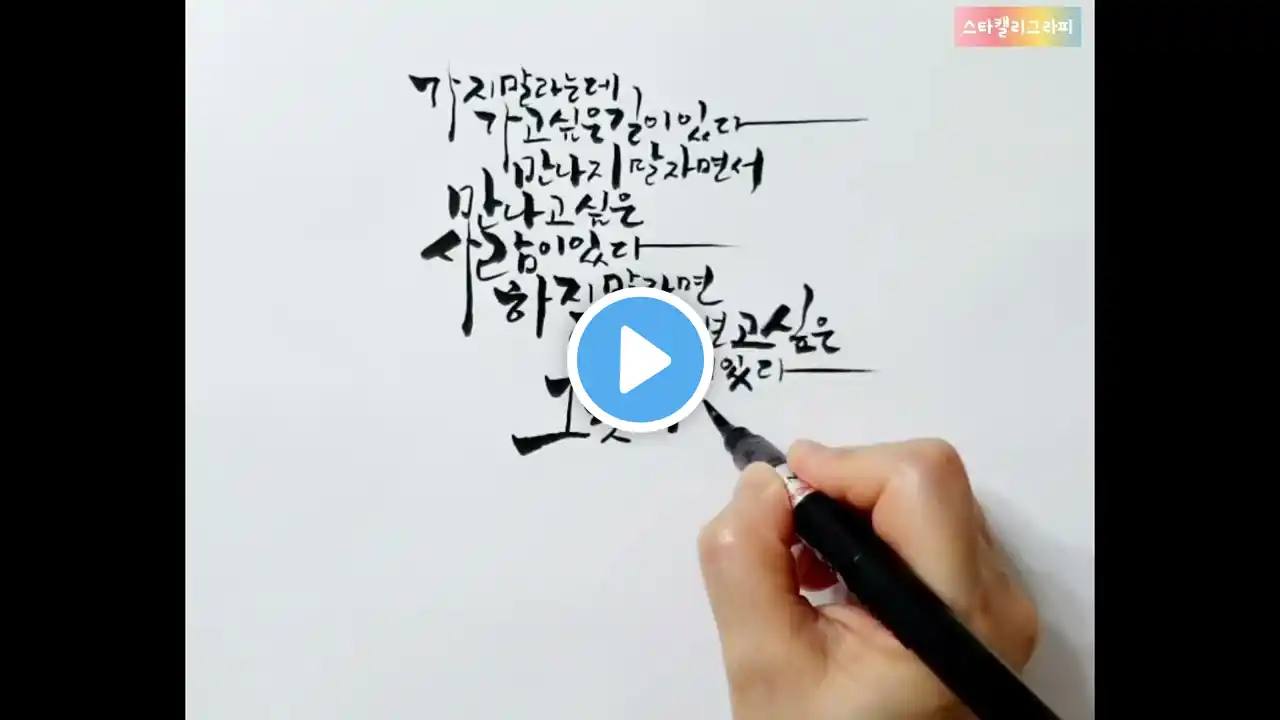 스타캘리그라피
가지말라는데
가고싶은길이있다
만나지말자면서
만나고싶은
사람이있다
하지말라면
보고싶은
있다